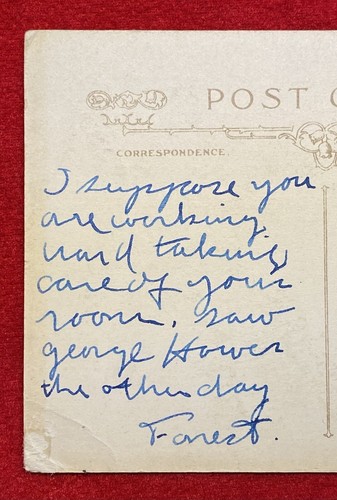 POST C
CORRESPONDENCE.
I suppose you
are working
hard taking
care of your
room. saw
george Hower
the other day
Forest.